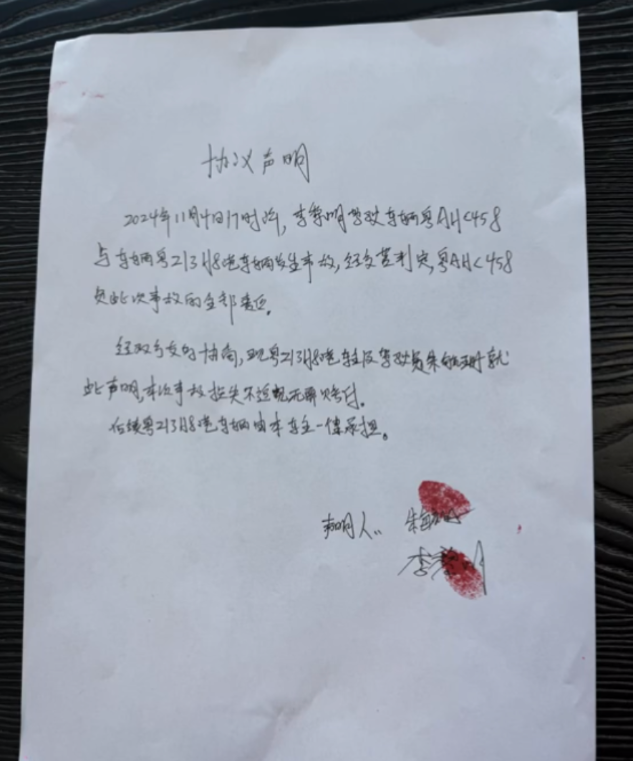 协议声明
2024年11月4日17时许，李 明驾驶车辆粤AH 458
与车辆粤 213H8 车辆发生事故，经交警判定，粤AH 458
负此次事故的全部责任。
经双方友好协商，现粤 213H8 车主及驾驶员朱 就
此声明，本次事故损失不追 无 赔付。
后续粤 213H8 车辆由本车主一律承担。
声明人：朱
李